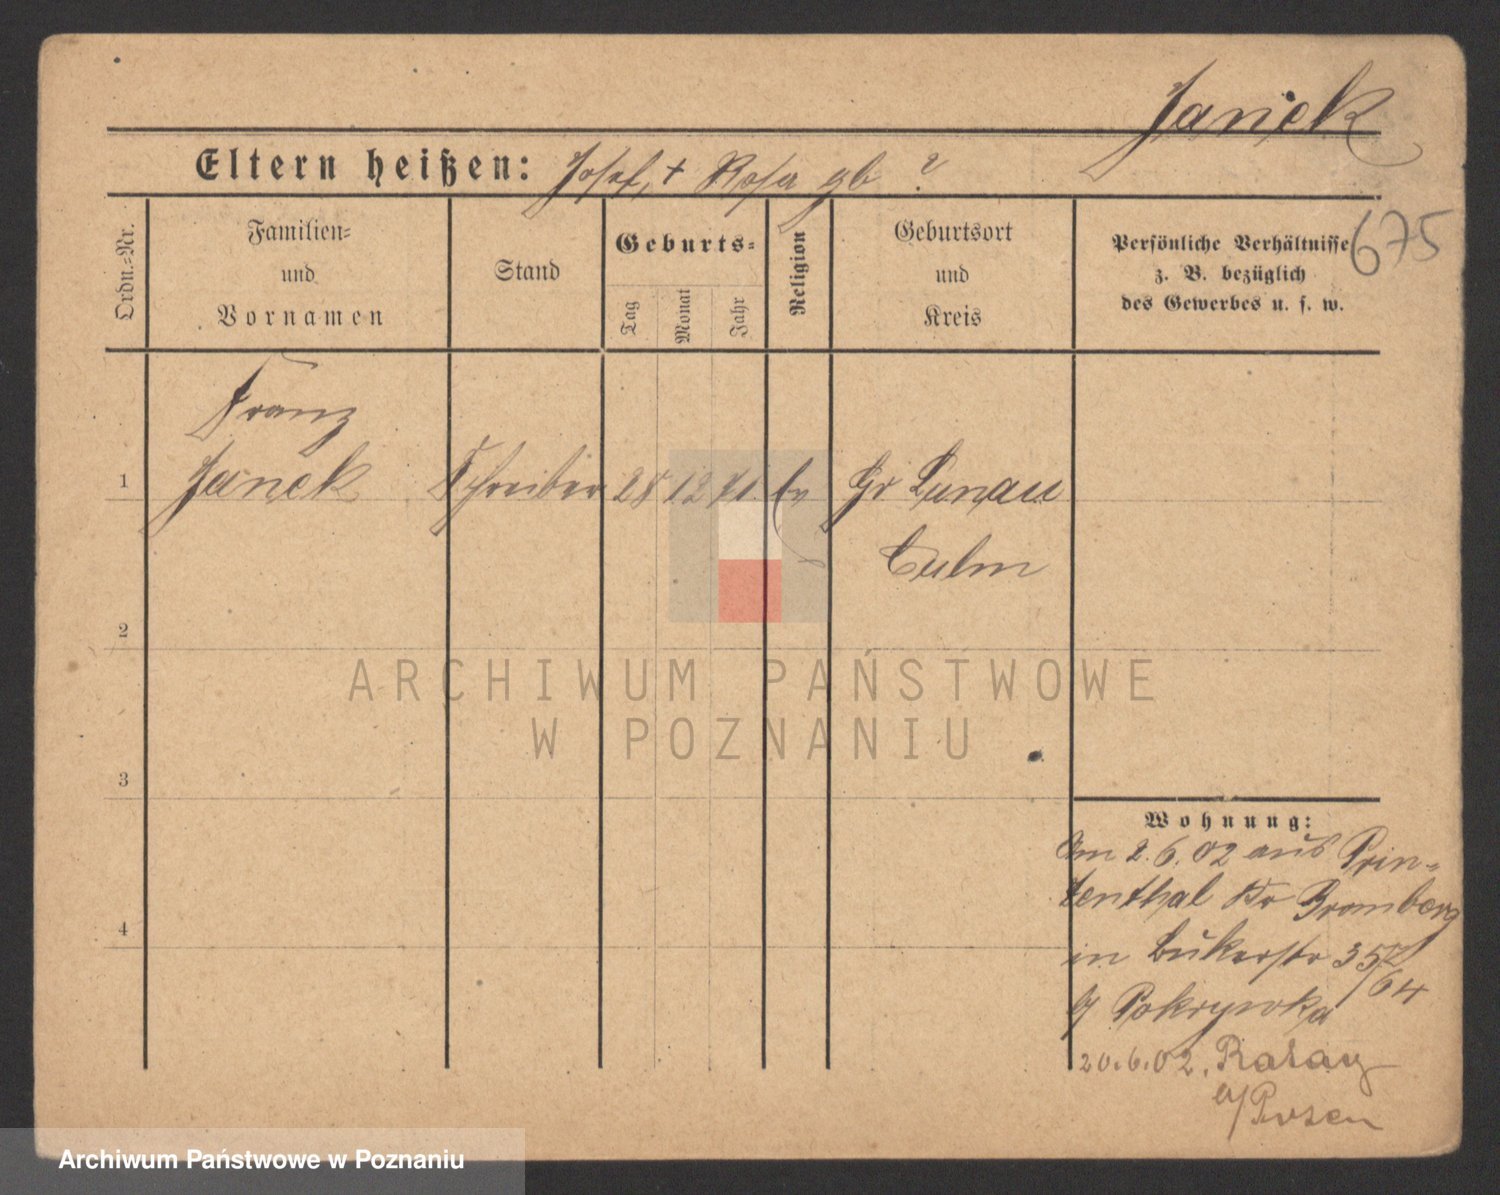 Janek
Eltern heißen: Josef, + Rosa gb ?
Ordn.-Nr.
Familien-
und
Vornamen
Stand
Geburts-
Tag
Monat
Jahr
Religion
Geburtsort
und
Kreis
Persönliche Verhältnisse
z. B. bezüglich
des Gewerbes u. s. w.
675
Franz
1 Janek Schreiber 28 12 71 Ev Gr Lunau
Culm
2
3
4
Wohnung:
Am 2.6.02 aus Prin-
zenthal Kr Bromberg
in Bukerstr 35
/64
b/ Pokrywka
20.6.02. Rataj
b/Posen
ARCHIWUM PAŃSTWOWE
W POZNANIU
Archiwum Państwowe w Poznaniu